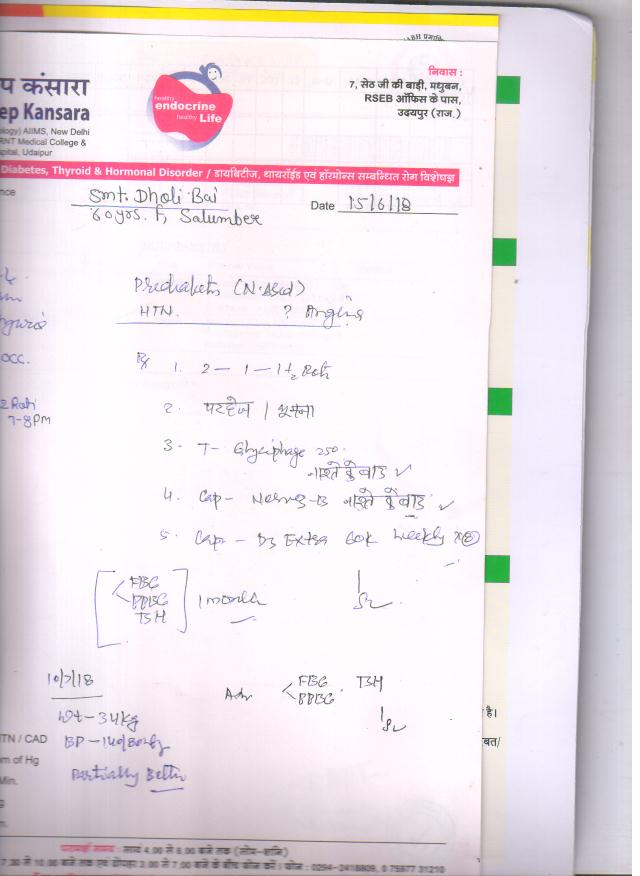 निवास :
7, सेठ जी की बाड़ी, मधुबन,
RSEB ऑफिस के पास,
उदयपुर (राज.)
प कंसारा
ep Kansara
ology) AIIMS, New Delhi
RNT Medical College &
spital, Udaipur
healthy
endocrine
healthy Life
Diabetes, Thyroid & Hormonal Disorder / डायबिटीज, थायरॉईड एवं हॉरमोन्स सम्बन्धित रोग विशेषज्ञ
nce Smt. Dholi Bai
60 yrs. F, Salumber
Date 15/6/18
Prediabetes
HTN. ? Angina
OCC.
Rx 1. 2 - 1 - 1+2 Roti
2 Roti
7-8 PM
2. परहेज / घूमना
3- T- Glyciphage 250.
नाश्ते के बाद ✓
4. Cap- नाश्ते के बाद ✓
5. Cap- D3 Extra 60K weekly
FBG
PPBG
TSH
1 month
10/7/18
Adv FBG TSH
PPBG
Wt - 34 kg
TN / CAD BP - 140/80
m of Hg
Partially Better
Min.
है।
बत/
परामर्श समय : सायं 4.00 से 6.00 बजे तक (सोम-शनि)
7.30 से 10.00 बजे तक एवं दोपहर 3.00 से 7.00 बजे के बीच फोन करें। फोन : 0294-2418809, 0 75977 31210